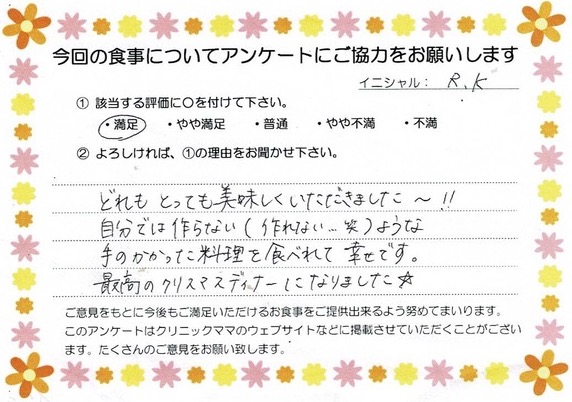 今回の食事についてアンケートにご協力をお願いします
イニシャル： R.K
① 該当する評価に〇を付けて下さい。
・満足 ・やや満足 ・普通 ・やや不満 ・不満
② よろしければ、①の理由をお聞かせ下さい。
どれも とっても美味しくいただきました〜!!
自分では作らない(作れない…笑)ような
手のかかった料理を食べれて 幸せです。
最高のクリスマスディナーになりました☆
ご意見をもとに今後もご満足いただけるお食事をご提供出来るよう努めてまいります。
このアンケートはクリニックママのウェブサイトなどに掲載させていただくことがござい
ます。たくさんのご意見をお願い致します。